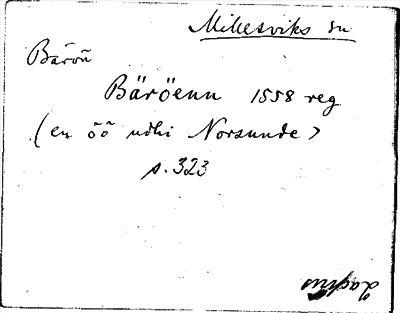 Millesviks sn
Bärön
Bäröenn 1558 reg
(en öö udhi Norsunde)
s. 323